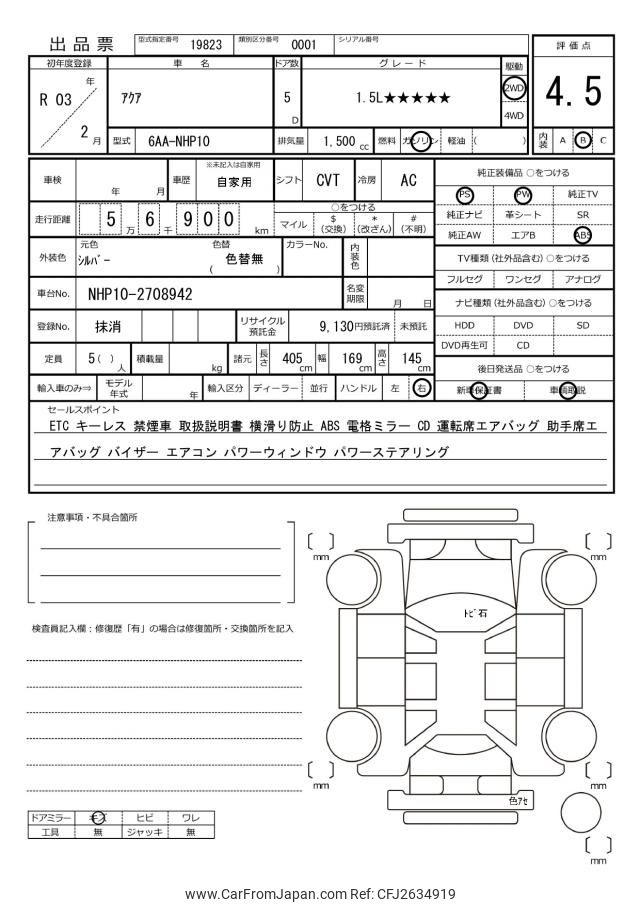 出品票 型式指定番号 19823 類別区分番号 0001 シリアル番号
評価点
4.5
内装 A B C
初年度登録 車名 ドア数 グレード 駆動
R 03 年 2 月 アクア 5 D 1.5L★★★★★ 2WD 4WD
型式 6AA-NHP10 排気量 1,500 cc 燃料 ガソリン 軽油 ( )
車検 年 月 車歴 ※未記入は自家用 自家用 シフト CVT 冷房 AC
走行距離 5 万 6 千 9 0 0 km
○をつける
マイル $(交換) *(改ざん) #(不明)
外装色 元色 シルバー 色替 ( 色替無 ) カラーNo. 内装色
車台No. NHP10-2708942 名変期限 月 日
登録No. 抹消 リサイクル預託金 9,130円預託済 未預託
定員 5( )人 積載量 kg 諸元 長さ 405 cm 幅 169 cm 高さ 145 cm
輸入車のみ⇒ モデル年式 年 輸入区分 ディーラー 並行 ハンドル 左 右
純正装備品 ○をつける
PS PW 純正TV
純正ナビ 革シート SR
純正AW エアB ABS
TV種類(社外品含む) ○をつける
フルセグ ワンセグ アナログ
ナビ種類(社外品含む) ○をつける
HDD DVD SD
DVD再生可 CD
後日発送品 ○をつける
新車保証書 車輌取説
セールスポイント
ETC キーレス 禁煙車 取扱説明書 横滑り防止 ABS 電格ミラー CD 運転席エアバッグ 助手席エ
アバッグ バイザー エアコン パワーウィンドウ パワーステアリング
注意事項・不具合箇所
検査員記入欄:修復歴「有」の場合は修復箇所・交換箇所を記入
[ ] mm
[ ] mm
トビ石
[ ] mm
[ ] mm
色アセ
[ ] mm
ドアミラー キズ ヒビ ワレ
工具 無 ジャッキ 無
www.CarFromJapan.com Ref: CFJ2634919